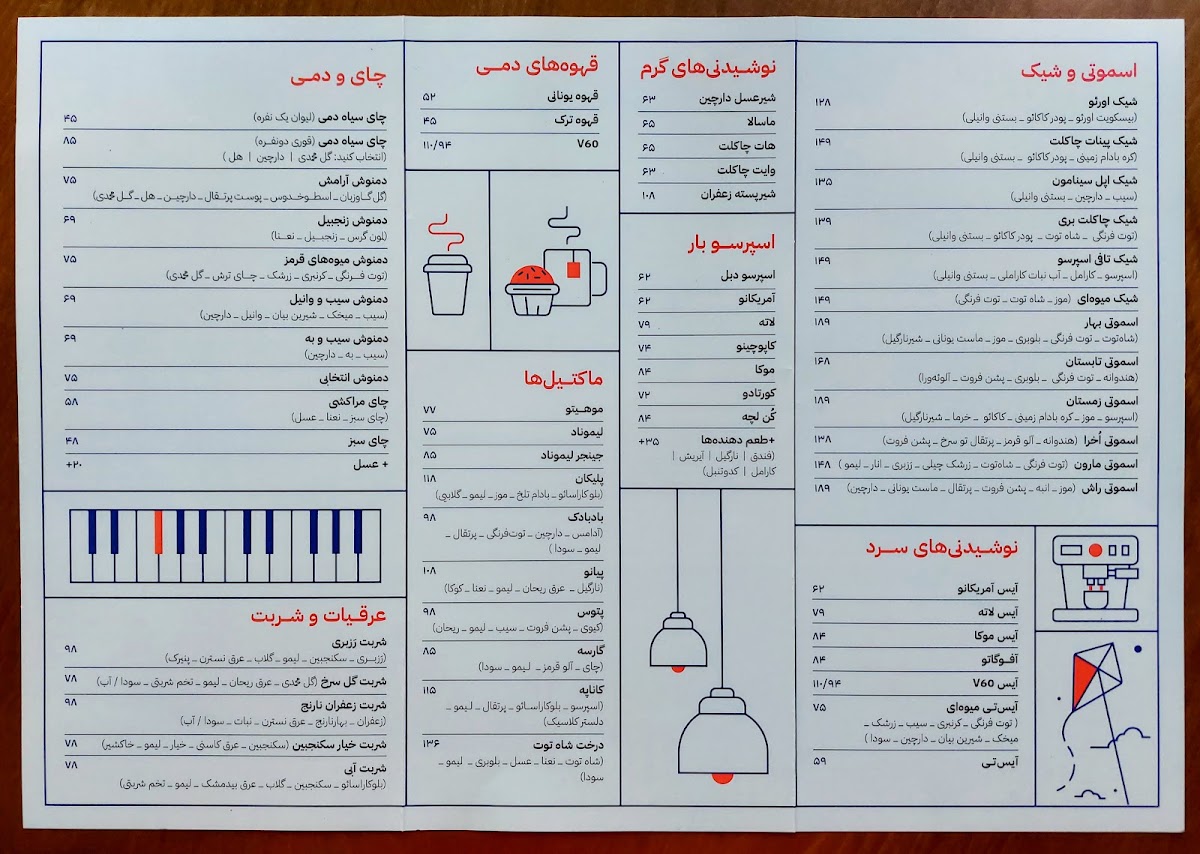 اسموتی و شیک
شیک اورئو ۱۲۸
(بیسکویت اورئو _ پودر کاکائو _ بستنی وانیلی)
شیک پینات چاکلت ۱۴۹
(کره بادام زمینی _ پودر کاکائو _ بستنی وانیلی)
شیک اپل سینامون ۱۳۵
(سیب _ دارچین _ بستنی وانیلی)
شیک چاکلت بری ۱۳۹
(توت فرنگی _ شاه توت _ پودر کاکائو _ بستنی وانیلی)
شیک تافی اسپرسو ۱۴۹
(اسپرسو _ کارامل _ آب نبات کاراملی _ بستنی وانیلی)
شیک میوه‌ای (موز _ شاه توت _ توت فرنگی) ۱۴۹
اسموتی بهار ۱۸۹
(شاه‌توت _ توت فرنگی _ بلوبری _ موز _ ماست یونانی _ شیرنارگیل)
اسموتی تابستان ۱۶۸
(هندوانه _ توت فرنگی _ بلوبری _ پشن فروت _ آلوئه‌ورا)
اسموتی زمستان ۱۸۹
(اسپرسو _ موز _ کره بادام زمینی _ کاکائو _ خرما _ شیرنارگیل)
اسموتی اُخرا (هندوانه _ آلو قرمز _ پرتقال تو سرخ _ پشن فروت) ۱۳۸
اسموتی مارون (توت فرنگی _ شاه‌توت _ زرشک چیلی _ رزبری _ انار _ لیمو ) ۱۴۸
اسموتی راش (موز _ انبه _ پشن فروت _ پرتقال _ ماست یونانی _ دارچین) ۱۸۹
نوشیدنی‌های سرد
آیس آمریکانو ۶۲
آیس لاته ۷۹
آیس موکا ۸۴
آفوگاتو ۸۴
آیس V60 ۱۱۰/۹۴
آیس‌تی میوه‌ای ۷۵
( توت فرنگی _ کرنبری _ سیب _ زرشک _
میخک _ شیرین بیان _ دارچین _ سودا )
آیس‌تی ۵۹
نوشیدنی‌های گرم
شیرعسل دارچین ۶۳
ماسالا ۶۵
هات چاکلت ۶۵
وایت چاکلت ۶۳
شیرپسته زعفران ۱۰۸
اسپرسو بار
اسپرسو دبل ۶۲
آمریکانو ۶۲
لاته ۷۹
کاپوچینو ۷۴
موکا ۸۴
کورتادو ۷۲
کُن لچه ۸۴
+طعم دهنده‌ها +۳۵
(فندق | نارگیل | آیریش |
کارامل | کدوتنبل)
قهوه‌های دمی
قهوه یونانی ۵۲
قهوه ترک ۴۵
V60 ۱۱۰/۹۴
ماکتیل‌ها
موهیتو ۷۷
لیموناد ۷۵
جینجر لیموناد ۸۵
پلیکان ۱۱۸
(بلوکاراسائو _ بادام تلخ _ موز _ لیمو _ گلابی)
بادبادک ۹۸
(آدامس _ دارچین _ توت‌فرنگی _ پرتقال _
لیمو _ سودا )
پیانو ۱۰۸
(نارگیل _ عرق ریحان _ لیمو _ نعنا _ کوکا)
پتوس ۹۸
(کیوی _ پشن فروت _ سیب _ لیمو _ ریحان)
گارسه ۸۵
(چای _ آلو قرمز _ لیمو _ سودا)
کاناپه ۱۱۵
(اسپرسو _ بلوکاراسائو _ پرتقال _ لیمو _
دلستر کلاسیک)
درخت شاه توت ۱۳۶
(شاه توت _ نعنا _ عسل _ بلوبری _ لیمو _
سودا)
چای و دمی
چای سیاه دمی (لیوان یک نفره) ۴۵
چای سیاه دمی (قوری دونفره) ۸۵
(انتخاب کنید: گل محمدی | دارچین | هل )
دمنوش آرامش ۷۵
(گل گاوزبان _ اسطوخدوس _ پوست پرتقال _ دارچین _ هل _ گل محمدی)
دمنوش زنجبیل ۶۹
(لمون گرس _ زنجبیل _ نعنا)
دمنوش میوه‌های قرمز ۷۵
(توت فرنگی _ کرنبری _ زرشک _ چای ترش _ گل محمدی)
دمنوش سیب و وانیل ۶۹
(سیب _ میخک _ شیرین بیان _ وانیل _ دارچین)
دمنوش سیب و به ۶۹
(سیب _ به _ دارچین)
دمنوش انتخابی ۷۵
چای مراکشی ۵۸
(چای سبز _ نعنا _ عسل)
چای سبز ۴۸
+ عسل +۲۰
عرقیات و شربت
شربت رَزبری ۹۸
(رَزبری _ سکنجبین _ لیمو _ گلاب _ عرق نسترن _ پنیرک)
شربت گل سرخ (گل محمدی _ عرق ریحان _ لیمو _ تخم شربتی _ سودا / آب) ۷۸
شربت زعفران نارنج ۹۸
(زعفران _ بهارنارنج _ عرق نسترن _ نبات _ سودا / آب)
شربت خیار سکنجبین (سکنجبین _ عرق کاسنی _ خیار _ لیمو _ خاکشیر) ۷۸
شربت آبی ۷۸
(بلوکاراسائو _ سکنجبین _ گلاب _ عرق بیدمشک _ لیمو _ تخم شربتی)